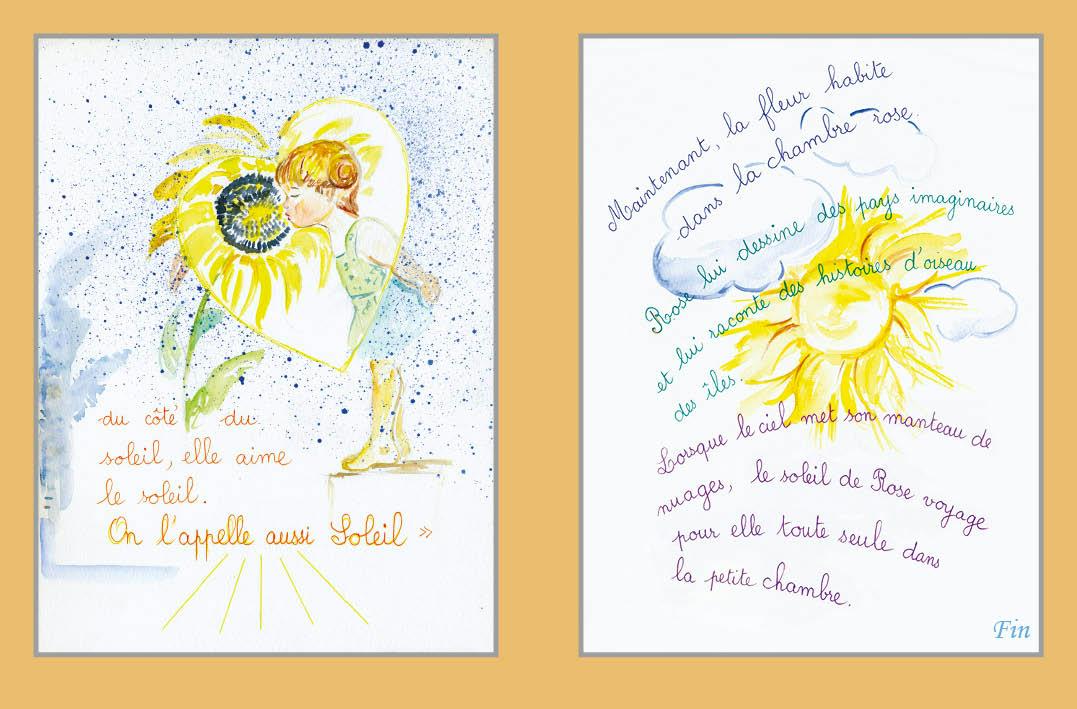 du côté du
soleil, elle aime
le soleil.
On l'appelle aussi Soleil »
Maintenant, la fleur habite
dans la chambre rose
Rose lui dessine des pays imaginaires
et lui raconte des histoires d'oiseau
des îles
Lorsque le ciel met son manteau de
nuages, le soleil de Rose voyage
pour elle toute seule dans
la petite chambre.
Fin